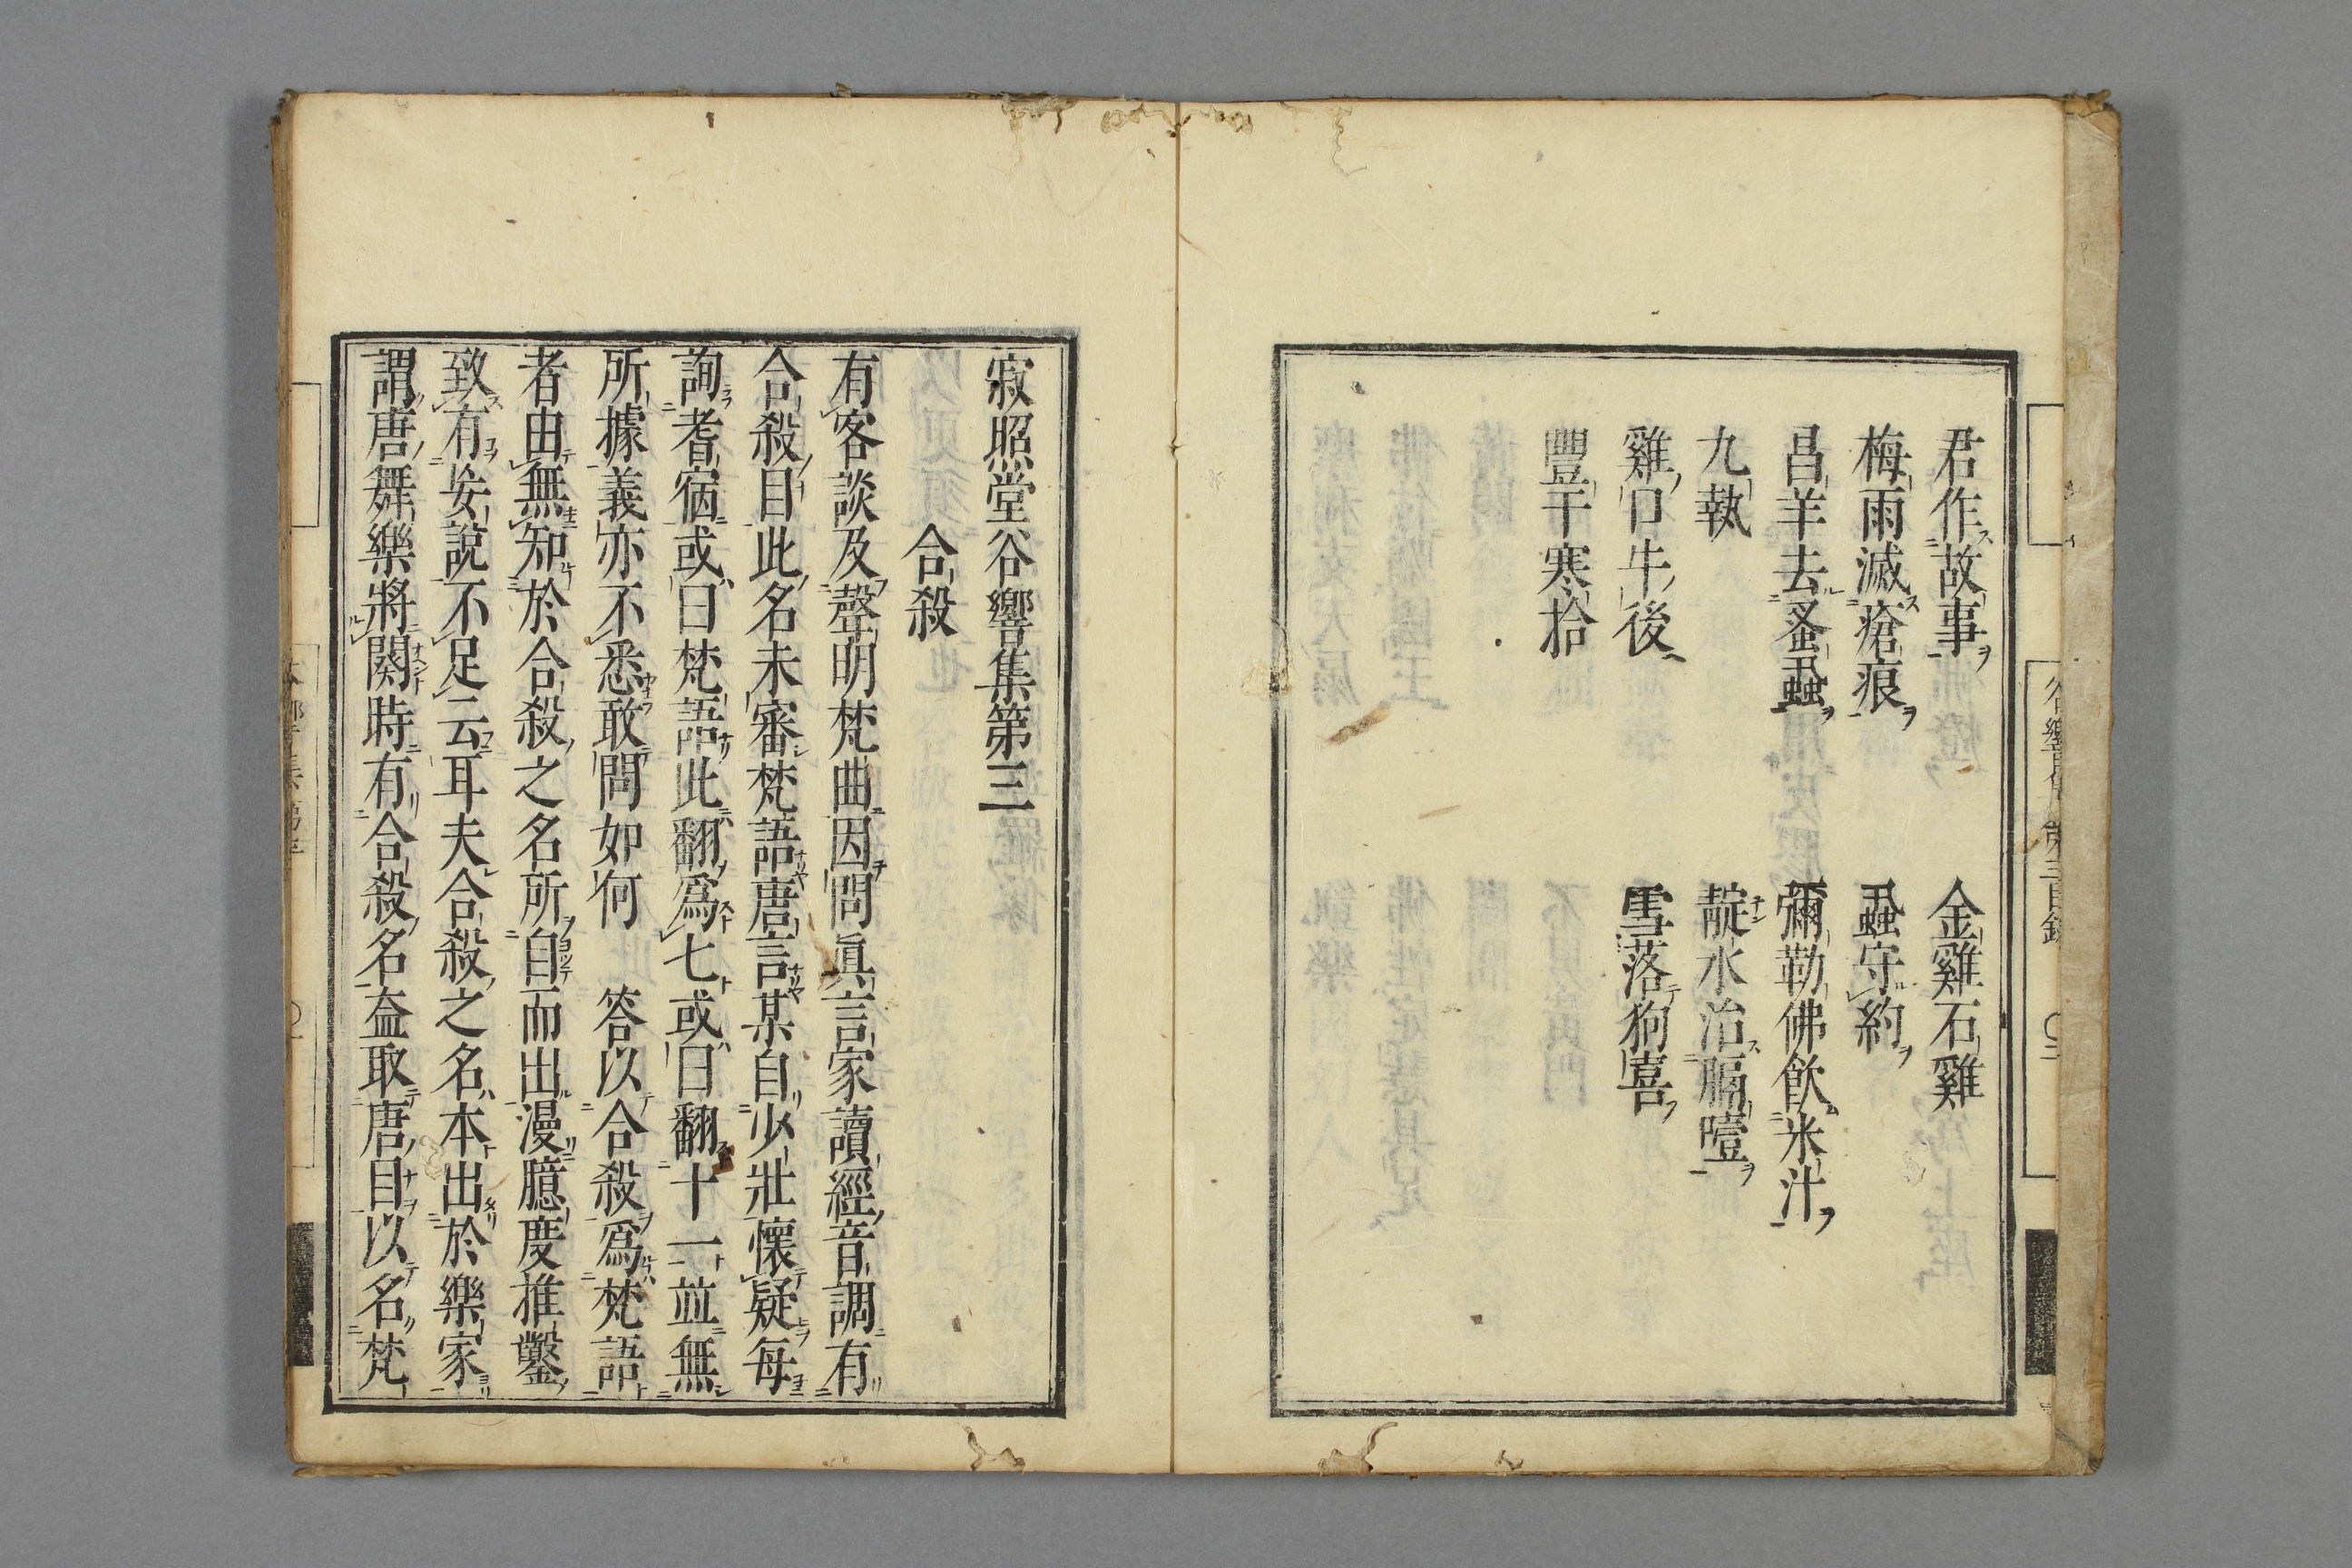 君作故事
金雞石雞
梅雨滅瘡痕
蝨守約
昌羊去蚤蝨
彌勒佛飲米汁
九執
靛水治膈噎
雞口牛後
雪落狗喜
豐干寒拾
寂照堂谷響集第三
合殺
有客談及聲明梵曲因問眞言家讀經音調有
合殺目此名未審梵語唐言某自少壯懷疑每
詢耆宿或曰梵語此翻爲七或曰翻十一並無
所據義亦不悉敢問如何　答以合殺爲梵語
者由無知於合殺之名所自而出漫臆度推鑿
致有妄說不足云耳夫合殺之名本出於樂家
謂唐舞樂將闋時有合殺名益取唐目以名梵